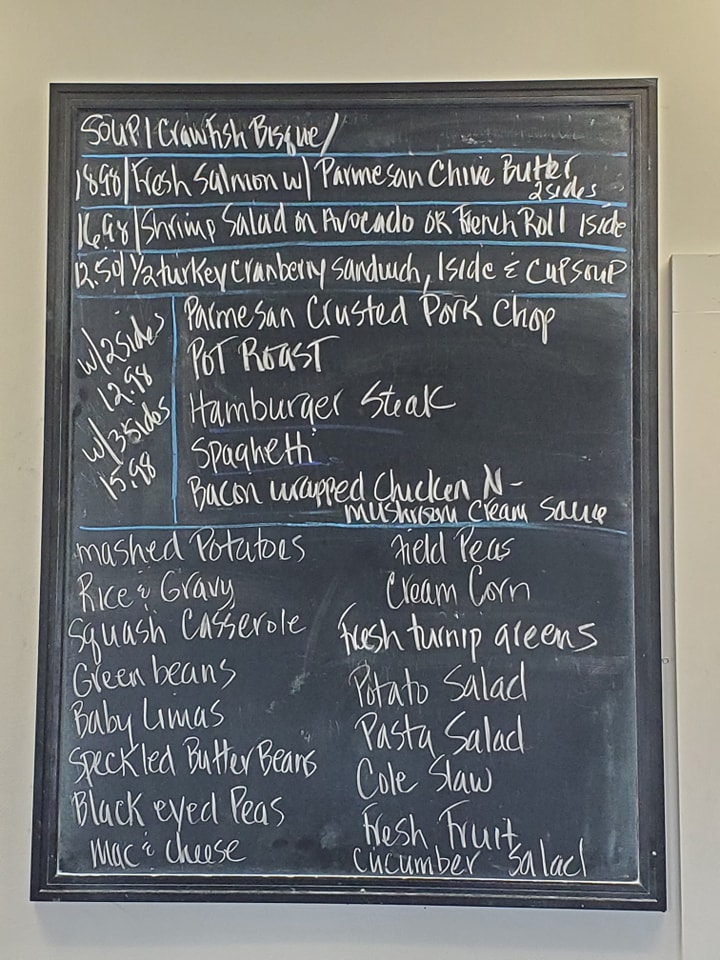 SOUP / Crawfish Bisque /
18.98 / Fresh Salmon w/ Parmesan Chive Butter
2 sides
16.98 / Shrimp Salad on Avocado OR French Roll 1side
12.50 / 1/2 turkey cranberry sandwich, 1side & Cup SOUP
w/2sides
12.98
w/3sides
15.98
Parmesan Crusted Pork Chop
POT ROAST
Hamburger Steak
Spaghetti
Bacon wrapped Chicken N-
mushroom cream sauce
mashed Potatoes
Rice & Gravy
Squash Casserole
Green beans
Baby Limas
Speckled Butter Beans
Black eyed Peas
mac & cheese
Field Peas
Cream Corn
Fresh turnip greens
Potato Salad
Pasta Salad
Cole Slaw
Fresh Fruit
cucumber salad